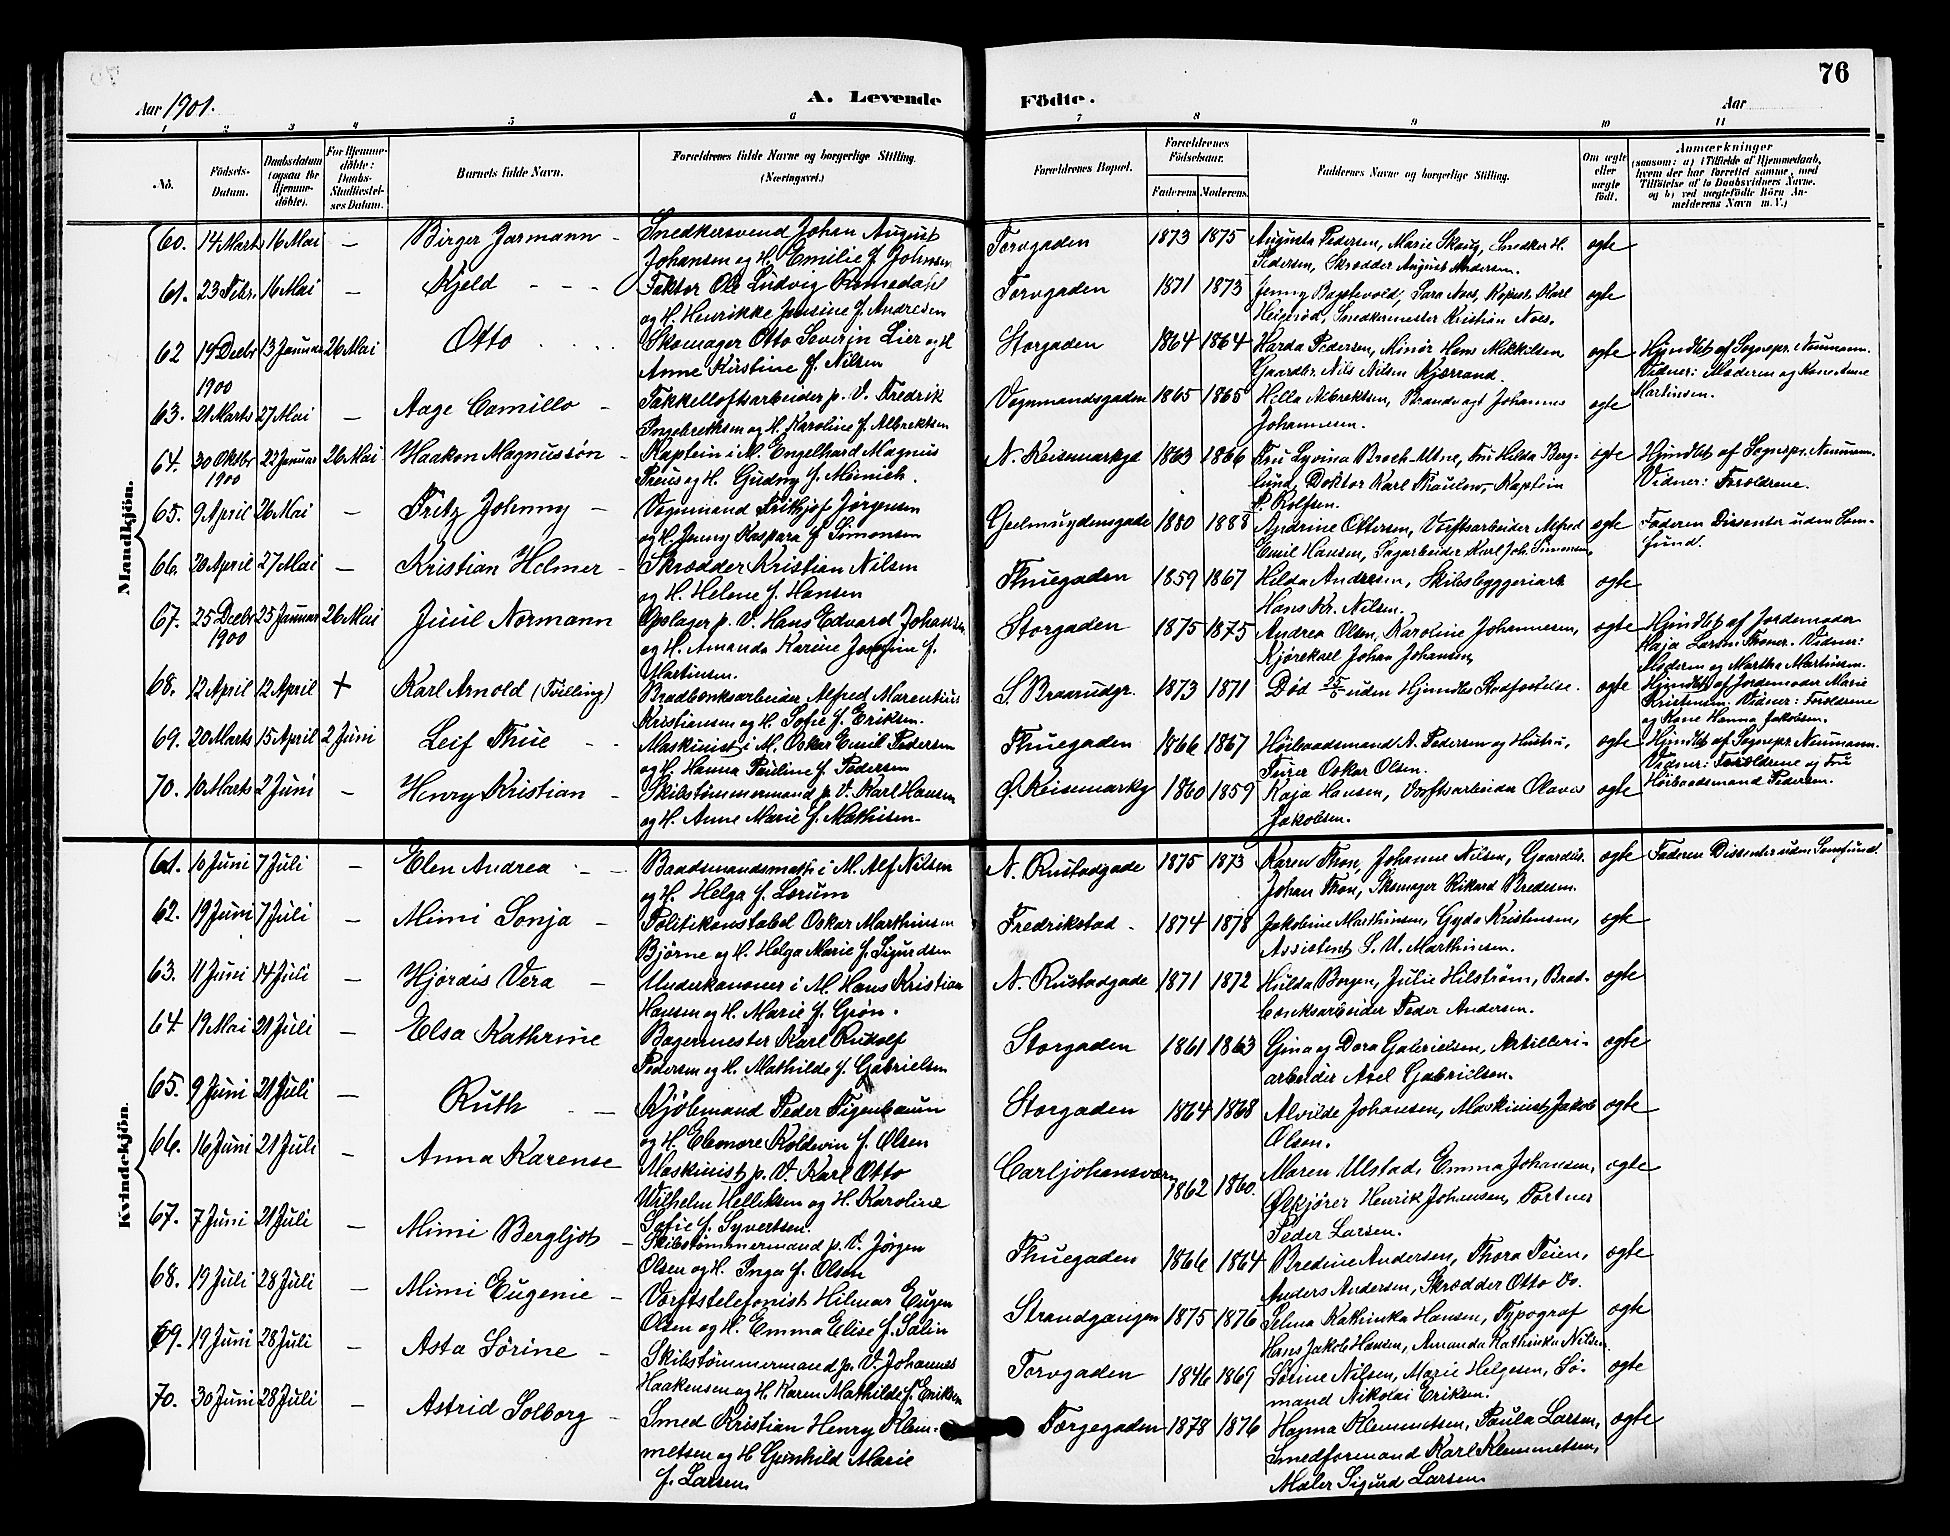 76
Aar 1901. A. Levende Födte. Aar
1 2 3 4 5 6 7 8 9 10 11
No. Födsels-Datum. Daabsdatum (ogsaa for Hjemme-döbte). For Hjemme-döbte: Daabs-Stadfæstel-ses Datum. Barnets fulde Navn. Forældrenes fulde Navne og borgerlige Stilling. (Næringsvei.) Forældrenes Bopæl. Forældrenes Födselsaar. Faderens Moderens Faddernes Navne og borgerlige Stilling. Om ægte eller uægte födt. Anmærkninger (saasom: a) i Tilfælde af Hjemmedaab, hvem der har forrettet samme, med Tilföielse af to Daabsvidners Navne, og b) ved uægtefödte Börn An-melderens Navn m. V.)
Mandkjön.
60. 14 Marts 16 Mai — Birger Jarmann – Snedkersvend Johan August Torvgaden 1873 1875 Augusta Pedersen, Marie Skaug, Snedker H. ægte
Johansen og H. Emilie f. Johnsen Pedersen, Skrædder August Andersen.
61. 23 Febr. 16 Mai — Kjeld - - - Faktor Ole Ludvig Torvgaden 1871 1873 Jenny Sara Noes, Kopist Karl ægte
og H. Henrikke Jensine f. Andresen Snedkermester Kristian Noes.
62 19 Decbr 1900 13 Januar 26 Mai Otto . . . . Skomager Otto Severin Lier og H Storgaden 1864 1864 Harda Pedersen, Minör Hans Mikkelsen ægte Hjmdbt af Sognepr. Neumann.
Anne Kirstine f. Nilsen Gaardbr. Nils Nilsen Kjærrand. Vidner: Moderen og Kone Anne Martinsen.
63. 21 Marts 27 Mai — Aage Camillo – Takkelloftsarbeider p. V. Fredrik Vognmandsgaden 1865 1865 Hella Albrektsen, Brandvagt Johannes ægte
Ingebretsen og H. Karoline f. Albrektsen Johannesen.
64. 30 Oktbr 1900 22 Januar 26 Mai Haakon Magnussøn – Kaptein i M. Engelhard Magnus N. Keisemarkge 1863 1866 Fru Lyvina Broch-Utne, Fru Hilda Berg- ægte Hjmdbt af Sognepr. Neumann.
Preus og H. Gudny f. Meinich. lund, Doktor Karl Thaulow, Kaptein P. Rolfsen. Vidner: Forældrene.
65. 9 April 26 Mai — Fritz Johnny – Vognmand Frithjof Jørgensen Geelmuydensgade 1880 1888 Andrine Ottersen, Værftsarbeider Alfred ægte Faderen Dissenter uden Sam-
og H. Jenny Kaspara f. Simonsen Emil Hansen, Sagarbeider Karl Joh. Simonsen, fund.
66. 20 April 27 Mai — Kristian Holmer – Skrædder Kristian Nilsen Thuegaden 1859 1867 Hilda Andersen, Skibsbyggeriarb ægte
og H. Helene f. Hansen Hans Kr. Nilsen.
67. 25 Decbr 1900 25 Januar 26 Mai Juul Normann Opslager p. V. Hans Edvard Johansen Storgaden 1875 1875 Andrea Olsen, Karoline Johannesen, ægte Hjmdbt af Jordemoder
og H. Amanda Karine Josefine f. Martinsen. Kjørekarl Johan Johansen, Kaja Larsen Troner. Vidner: Moderen og Marthe Martinsen.
68. 12 April 12 April + Karl Arnold (Tvilling) Bradbænksarbeider Alfred Marentius S. Braarudgr. 1873 1871 Død uden Hjmdbs Stadfæstelse. ægte Hjmdbt af Jordemoder Marie
Kristiansen og H. Sofie f. Eriksen. Kristensen. Vidner: Forældrene og Kone Hanna Jakobsen.
69. 20 Marts 15 April 2 Juni Leif Thue - - Maskinist i M. Oskar Emil Pedersen Thuegaden 1866 1867 Høibaadsmand A. Pedersen og Hustru, ægte Hjmdbt af Sognepr. Neumann.
og H. Hanna Pauline f. Pedersen Feier Oskar Olsen. Vidner: Forældrene og Fru Høibaadsmand Pedersen.
70. 10 Marts 2 Juni — Henry Kristian – Skibstømmermand p. V. Karl Hansen Ø. Keisemarkg 1860 1859 Kaja Hansen, Værftsarbeider Olaves ægte
og H. Anne Marie f. Mathisen. Jakobsen.
Kvindekjön.
61. 10 Juni 7 Juli — Elen Andrea - — Baadsmandsmath i M. Alf Nilsen N. Rustadgade 1875 1873 Karen Thon, Johanne Nilsen, Gaardbr. ægte Faderen Dissenter uden Samfund.
og H. Helga f. Lørum Johan Thon, Skomager Rikard Bredesen.
62. 19 Juni 7 Juli — Mimi Sonja – Politikonstabel Oskar Marthinsen Fredrikstad - 1874 1878 Jakobine Marthinsen, Gyda Kristensen, ægte
Bjørne og H. Helga Marie f. Sigurdsen Assistent S. U. Marthinsen.
63. 11 Juni 14 Juli — Hjørdis Vera – Underkanoner i M. Hans Kristian N. Rustadgade 1871 1872 Hulda Borgen, Julie Hilstrøm, Brad- ægte
Hansen og H. Marie f. Grøn. bænksarbeider Peder Andersen.
64 19 Mai 21 Juli — Elsa Kathrine Bagermester Karl Rudolf Storgaden 1861 1863 Gina og Dora Gabrielsen, Artilleri- ægte
Pedersen og H. Mathilde f. Gabrielsen arbeider Axel Gabrielsen.
65. 9 Juni 21 Juli — Ruth - — Kjøbmand Peder Figenbaum Storgaden 1864 1868 Alvilde Johansen, Maskinist Jakob ægte
og H. Eleonore Koldevin f. Olsen Olsen.
66. 16 Juni 21 Juli — Anna Karense Maskinist p. V. Karl Otto Carljohansværn 1862 1860. Maren Ulstad, Emma Johansen, ægte
Wilhelm Helliksen og H. Karoline Ølkjører Henrik Johansen, Portner
Sofie f. Syvertsen. Peder Larsen.
67. 7 Juni 21 Juli — Mimi Bergljot – Skibstømmermand p. V. Jørgen Thuegaden 1866 1864 Bredine Andersen, Thora Feien, ægte
Olsen og H. Inga f. Olsen Anders Andersen, Skrædder Otto Do.
68. 19 Juli 28 Juli — Mimi Eugenie – Værftstelefonist Hilmar Eugen Strandgangen 1875 1876 Selma Kathinka Hansen, Typograf ægte
Olsen og H. Emma Elise f. Salin Hans Jakob Hansen, Amanda Kathinka Nilsen
69. 19 Juni 28 Juli — Asta Sørine – Skibstømmermand p. V. Johannes Torvgaden 1846 1869 Sørine Nilsen, Marie Helgesen, Sø- ægte
Haakensen og H. Karen Mathilde f. Eriksen mand Nikolai Eriksen.
70. 30 Juni 28 Juli — Astrid Solborg – Smed Kristian Henry Klem- Færgegaden 1878 1876 Hanna Klemmetsen, Paula Larsen, ægte
metsen og H Gunhild Marie Smedformand Karl Klemmetsen,
f. Larsen Maler Sigurd Larsen